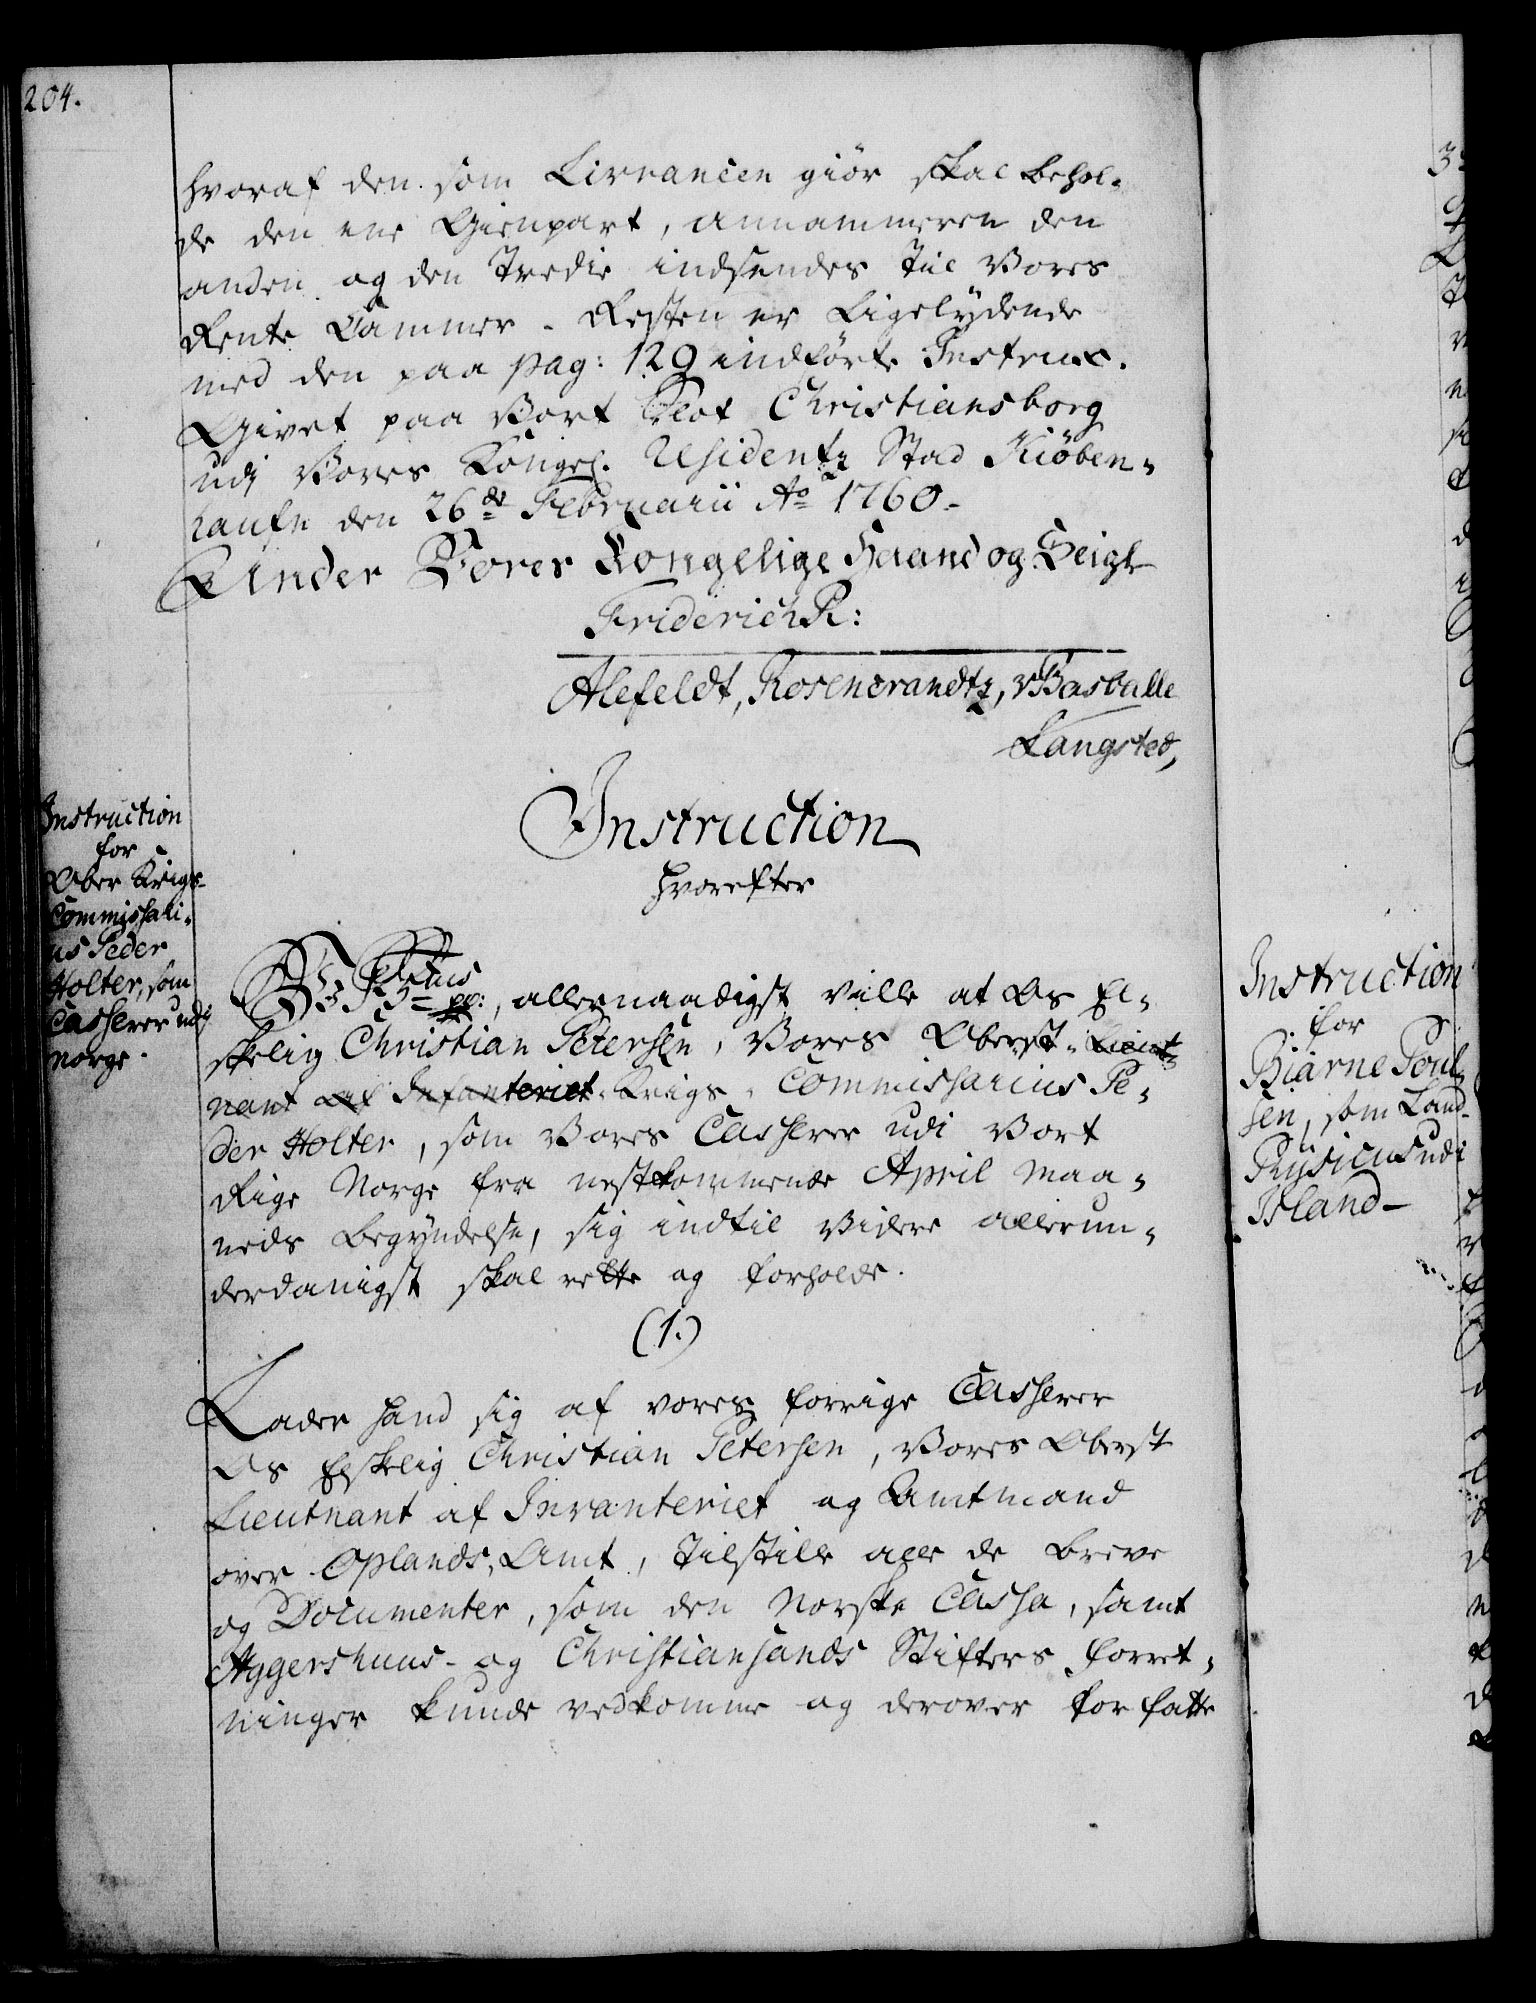 204.
hvoraf den som Livrancen giör skal behol-
de den ene Gienpart, annammeren den
anden og den Tredie indsendes til Vores
Rente Cammer. Resten er Ligelydende
med den paa pag: 129 indförte Instrux.
Givet paa Vort Slot Christiansborg
udj Vores Kongel. Residentz Stad Kiöben-
hafn den 26de Februarii Ao 1760.
Under Vores Kongelige Haand og Seigl
Friderich R:
Alefeldt, Rosencrandtz, vBasballe
Langsted,
Instruction
for
Ober Krigs-
Commissari-
us Peder
Holter, som
Casserer udj
Norge.
Instruction
hvorefter
Vi Fr 5tus pp:, allernaadigst ville at Os El-
skelig Christian Petersen, Vores Oberst- Lieut-
nant af Infanteriet Krigs- Commissarius Pe-
der Holter, som Vores Casserer udi Vort
Rige Norge fra nestkommende April Maa-
neds Begyndelse, sig indtil Videre allerun-
derdanigst skal rette og forholde.
(1.)
Lader hand sig af vores forrige Casserer
Os Elskelig Christian Petersen, Vores Oberst
Lieutnant af Infanteriet og Amtmand
over Oplands Amt, tilstille alle de breve
og Documenter, som den Norske Cassa, samt
Aggershuus- og Christiansands Stifters forret-
ninger kunde vedkomme og derover forfatte
Instruction
for
Biarne Poul-
sen, som Land-
Physicus udi
Island